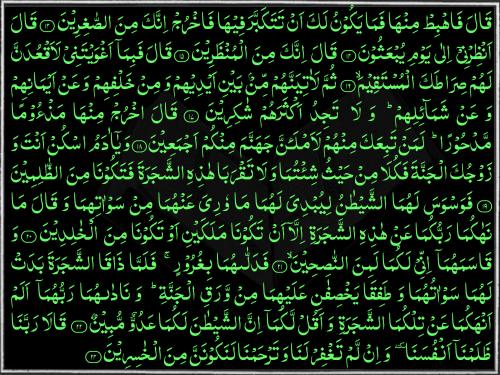 قَالَ فَاهْبِطْ مِنْهَا فَمَا يَكُوْنُ لَكَ اَنْ تَتَكَبَّرَ فِيْهَا فَاخْرُجْ اِنَّكَ مِنَ الصّٰغِرِيْنَ ﴿۱۳﴾ قَالَ
اَنْظِرْنِيْۤ اِلٰى يَوْمِ يُبْعَثُوْنَ ﴿۱۴﴾ قَالَ اِنَّكَ مِنَ الْمُنْظَرِيْنَ ﴿۱۵﴾ قَالَ فَبِمَاۤ اَغْوَيْتَنِيْ لَاَقْعُدَنَّ
لَهُمْ صِرَاطَكَ الْمُسْتَقِيْمَ ﴿۱۶﴾ ثُمَّ لَاٰتِيَنَّهُمْ مِّنْۢ بَيْنِ اَيْدِيْهِمْ وَ مِنْ خَلْفِهِمْ وَ عَنْ اَيْمَانِهِمْ
وَ عَنْ شَمَآئِلِهِمْ ؕ وَ لَا تَجِدُ اَكْثَرَهُمْ شٰكِرِيْنَ ﴿۱۷﴾ قَالَ اخْرُجْ مِنْهَا مَذْءُوْمًا
مَّدْحُوْرًا ؕ لَمَنْ تَبِعَكَ مِنْهُمْ لَاَمْلَـَٔنَّ جَهَنَّمَ مِنْكُمْ اَجْمَعِيْنَ ﴿۱۸﴾ وَ يٰۤاٰدَمُ اسْكُنْ اَنْتَ وَ
زَوْجُكَ الْجَنَّةَ فَكُلَا مِنْ حَيْثُ شِئْتُمَا وَ لَا تَقْرَبَا هٰذِهِ الشَّجَرَةَ فَتَكُوْنَا مِنَ الظّٰلِمِيْنَ
﴿۱۹﴾ فَوَسْوَسَ لَهُمَا الشَّيْطٰنُ لِيُبْدِيَ لَهُمَا مَا وٗرِيَ عَنْهُمَا مِنْ سَوْاٰتِهِمَا وَ قَالَ مَا
نَهٰىكُمَا رَبُّكُمَا عَنْ هٰذِهِ الشَّجَرَةِ اِلَّاۤ اَنْ تَكُوْنَا مَلَكَيْنِ اَوْ تَكُوْنَا مِنَ الْخٰلِدِيْنَ ﴿۲۰﴾ وَ
قَاسَمَهُمَاۤ اِنِّيْ لَكُمَا لَمِنَ النّٰصِحِيْنَ ﴿۲۱﴾ فَدَلّٰىهُمَا بِغُرُوْرٍ ۚ فَلَمَّا ذَاقَا الشَّجَرَةَ بَدَتْ
لَهُمَا سَوْاٰتُهُمَا وَ طَفِقَا يَخْصِفٰنِ عَلَيْهِمَا مِنْ وَّرَقِ الْجَنَّةِ ؕ وَ نَادٰىهُمَا رَبُّهُمَاۤ اَلَمْ
اَنْهَكُمَا عَنْ تِلْكُمَا الشَّجَرَةِ وَ اَقُلْ لَّكُمَاۤ اِنَّ الشَّيْطٰنَ لَكُمَا عَدُوٌّ مُّبِيْنٌ ﴿۲۲﴾ قَالَا رَبَّنَا
ظَلَمْنَاۤ اَنْفُسَنَا ٚ وَ اِنْ لَّمْ تَغْفِرْ لَنَا وَ تَرْحَمْنَا لَنَكُوْنَنَّ مِنَ الْخٰسِرِيْنَ ﴿۲۳﴾